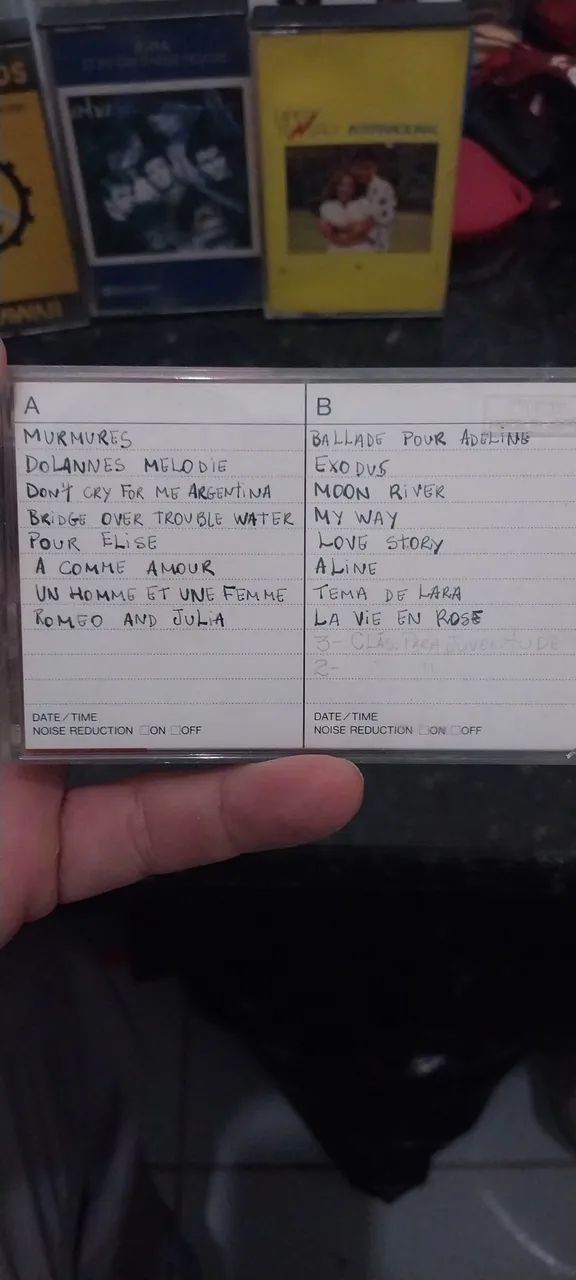 INTERNACIONAL
A
MURMURES
DOLANNES MELODIE
DON'T CRY FOR ME ARGENTINA
BRIDGE OVER TROUBLE WATER
POUR ELISE
A COMME AMOUR
UN HOMME ET UNE FEMME
ROMEO AND JULIA
DATE/TIME
NOISE REDUCTION □ON □OFF
B
BALLADE POUR ADELINE
EXODUS
MOON RIVER
MY WAY
LOVE STORY
ALINE
TEMA DE LARA
LA VIE EN ROSE
3- CLÁS. PARA JUVENTUDE
2- " "
DATE/TIME
NOISE REDUCTION □ON □OFF